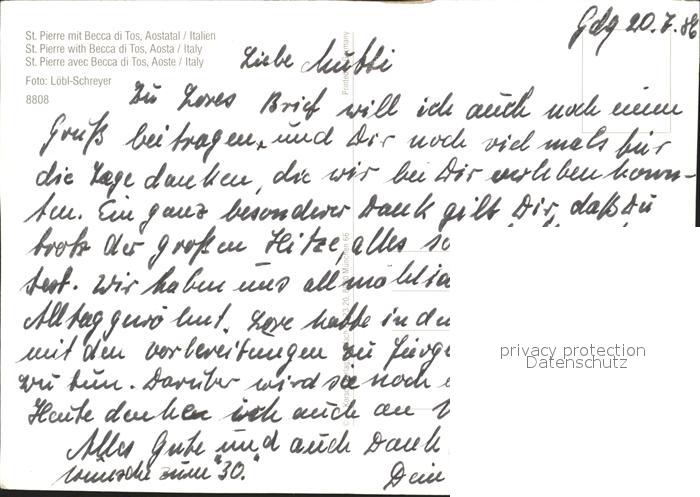 St. Pierre mit Becca di Tos, Aostatal / Italien
St. Pierre with Becca di Tos, Aosta / Italy
St. Pierre avec Becca di Tos, Aoste / Italy
Foto: Löbl-Schreyer
8808
Gdg 20.7.86
Liebe Mutti
Zu Lores Brief will ich auch noch einen
Gruß beitragen, und Dir noch vielmals für
die Tage danken, die wir bei Dir verleben konn-
ten. Ein ganz besonderer Dank gilt Dir, daß Du
trotz der großen Hitze, alles so
test. Wir haben uns allmählic
Alltag gewöhnt. Lore hatte in de
mit den Vorbereitungen zu Jürge
zu tun. Darüber wird sie noch
Heute denken ich auch an
Alles Gute und auch Dank
wünsche zum "30."
Dein
privacy protection
Datenschutz